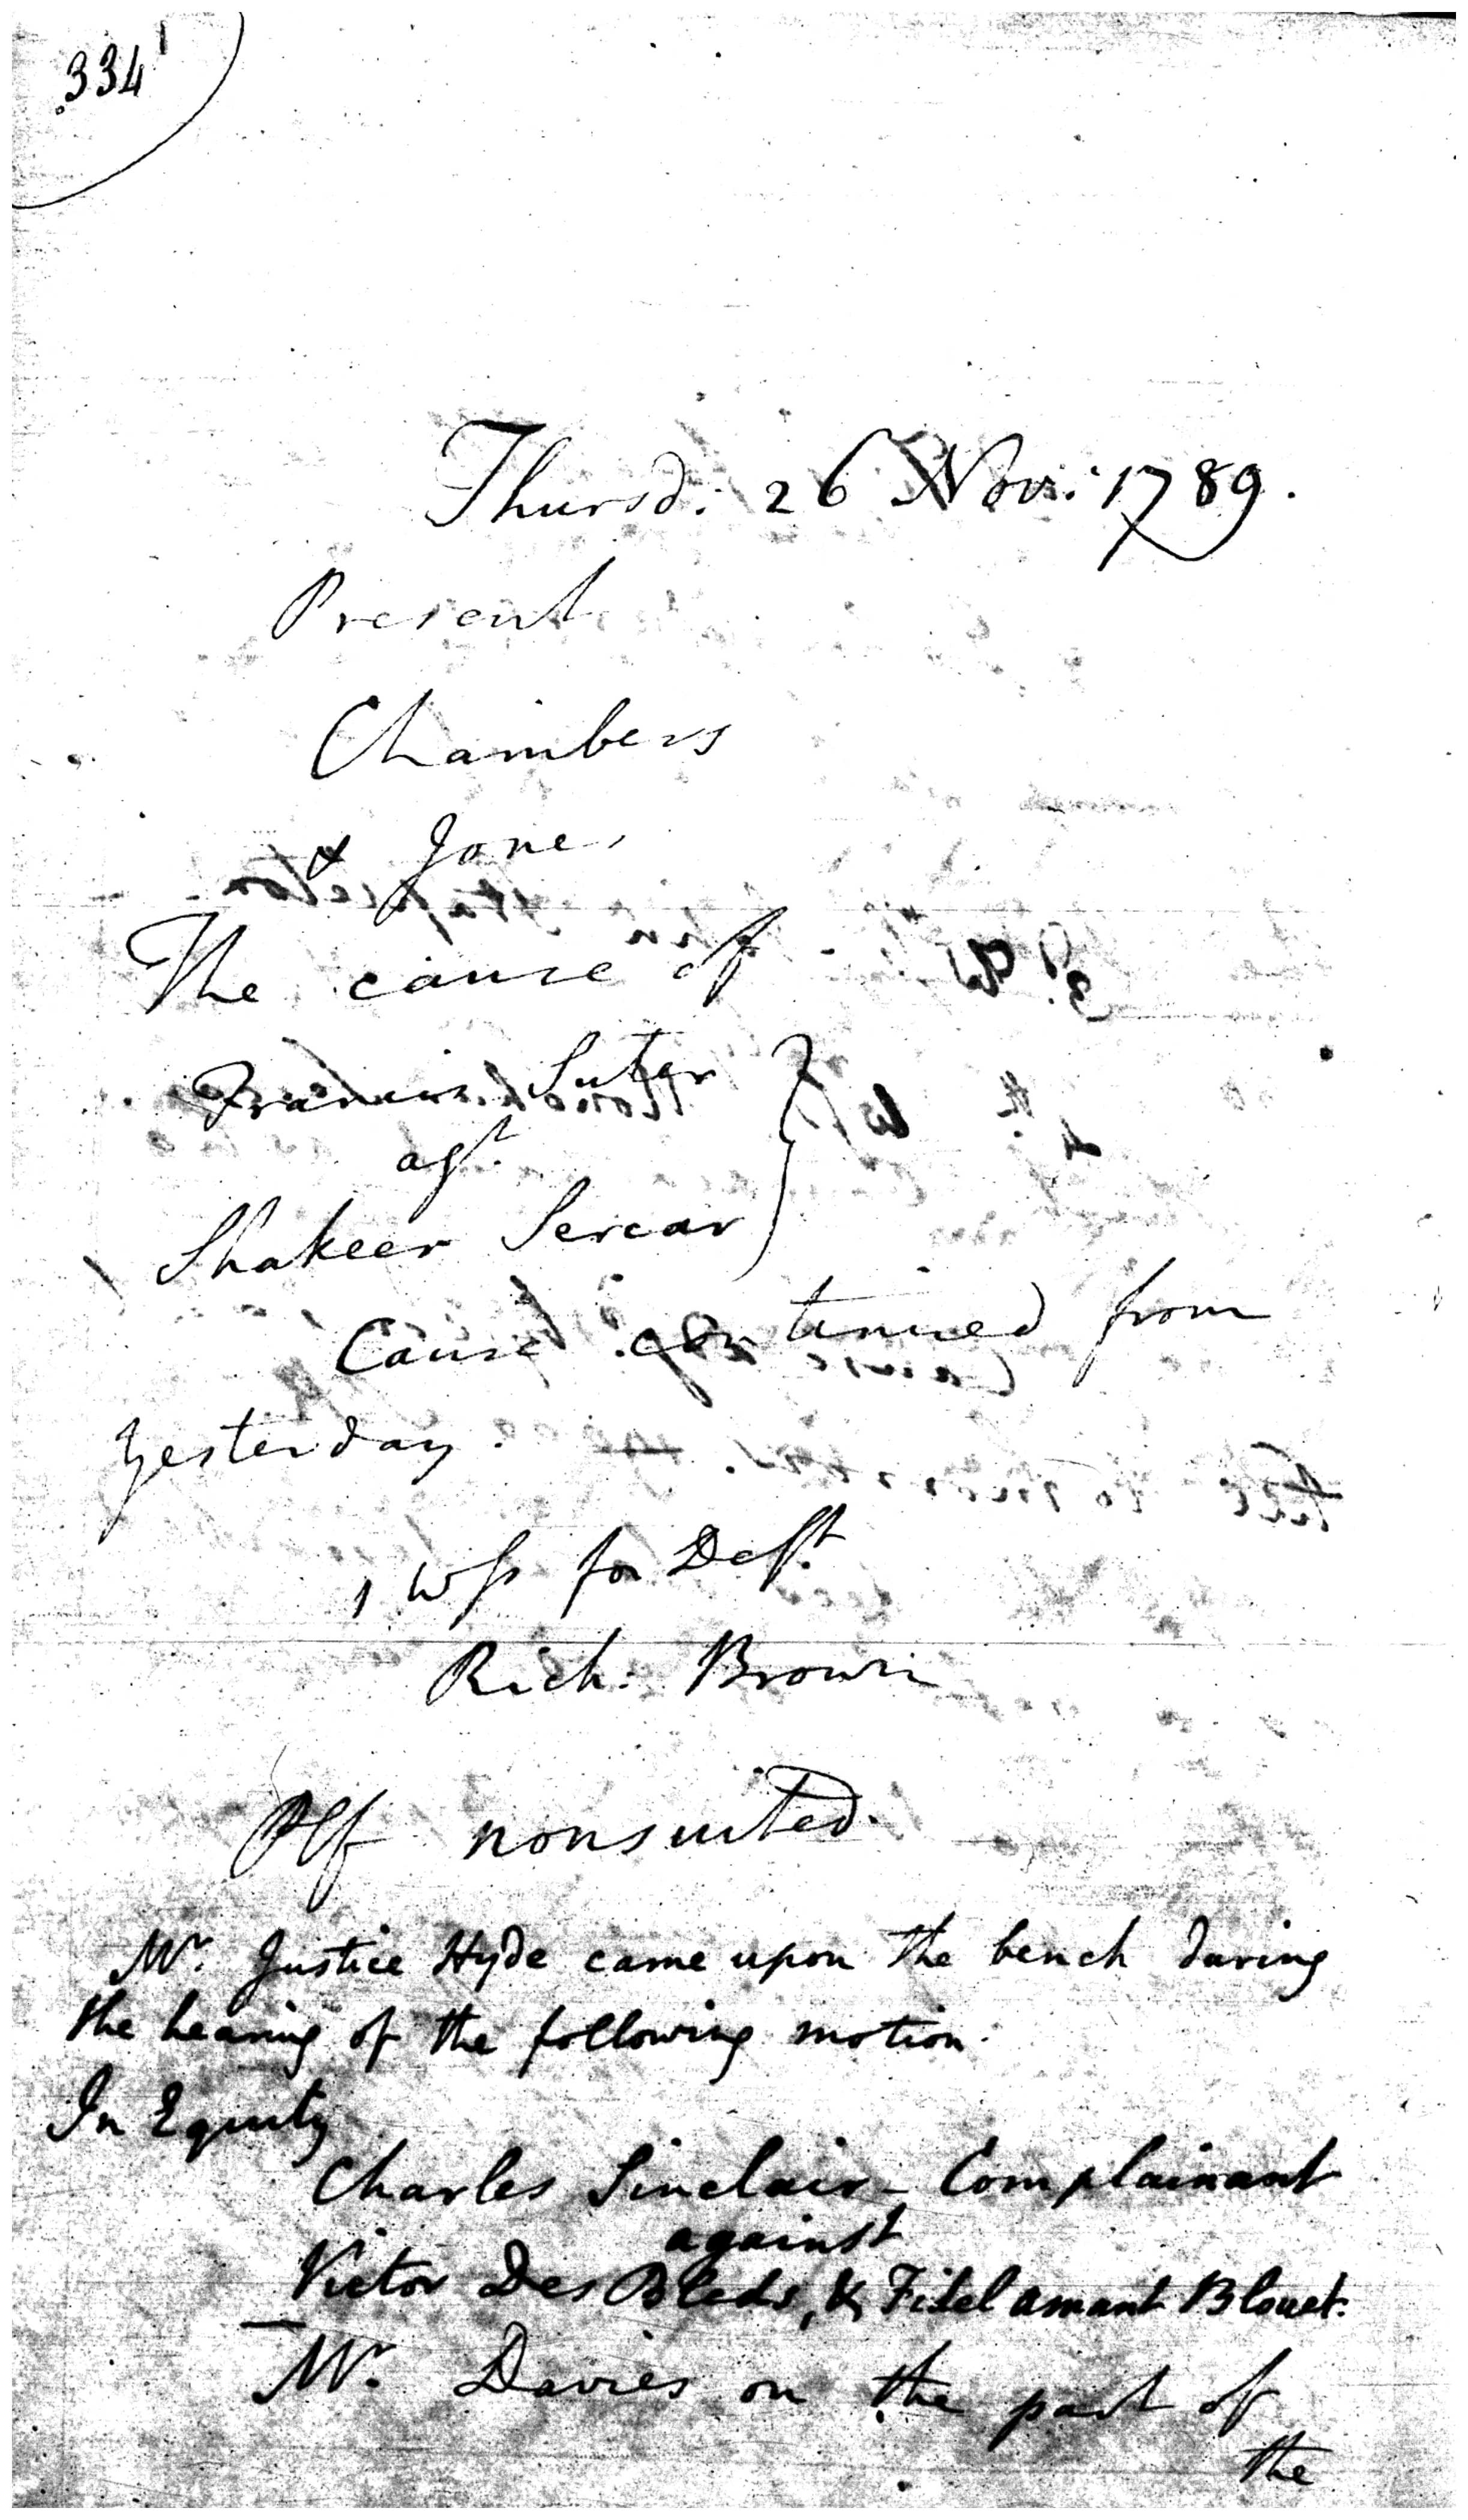 334
Thursd: 26 Nov: 1789.
Present
Chambers
& Jones
The cause of
Francis Suter
agst.
Shakeer Sercar
Cause continued from
yesterday.
1 Wss for Deft.
Rich: Brown
Plf nonsuited.
Mr. Justice Hyde came upon the bench during
the hearing of the following motion.
In Equity
Charles Sinclair - Complainant
against
Victor Des Bleds, & Fidel amant Blouet.
Mr. Davies on the part of
the